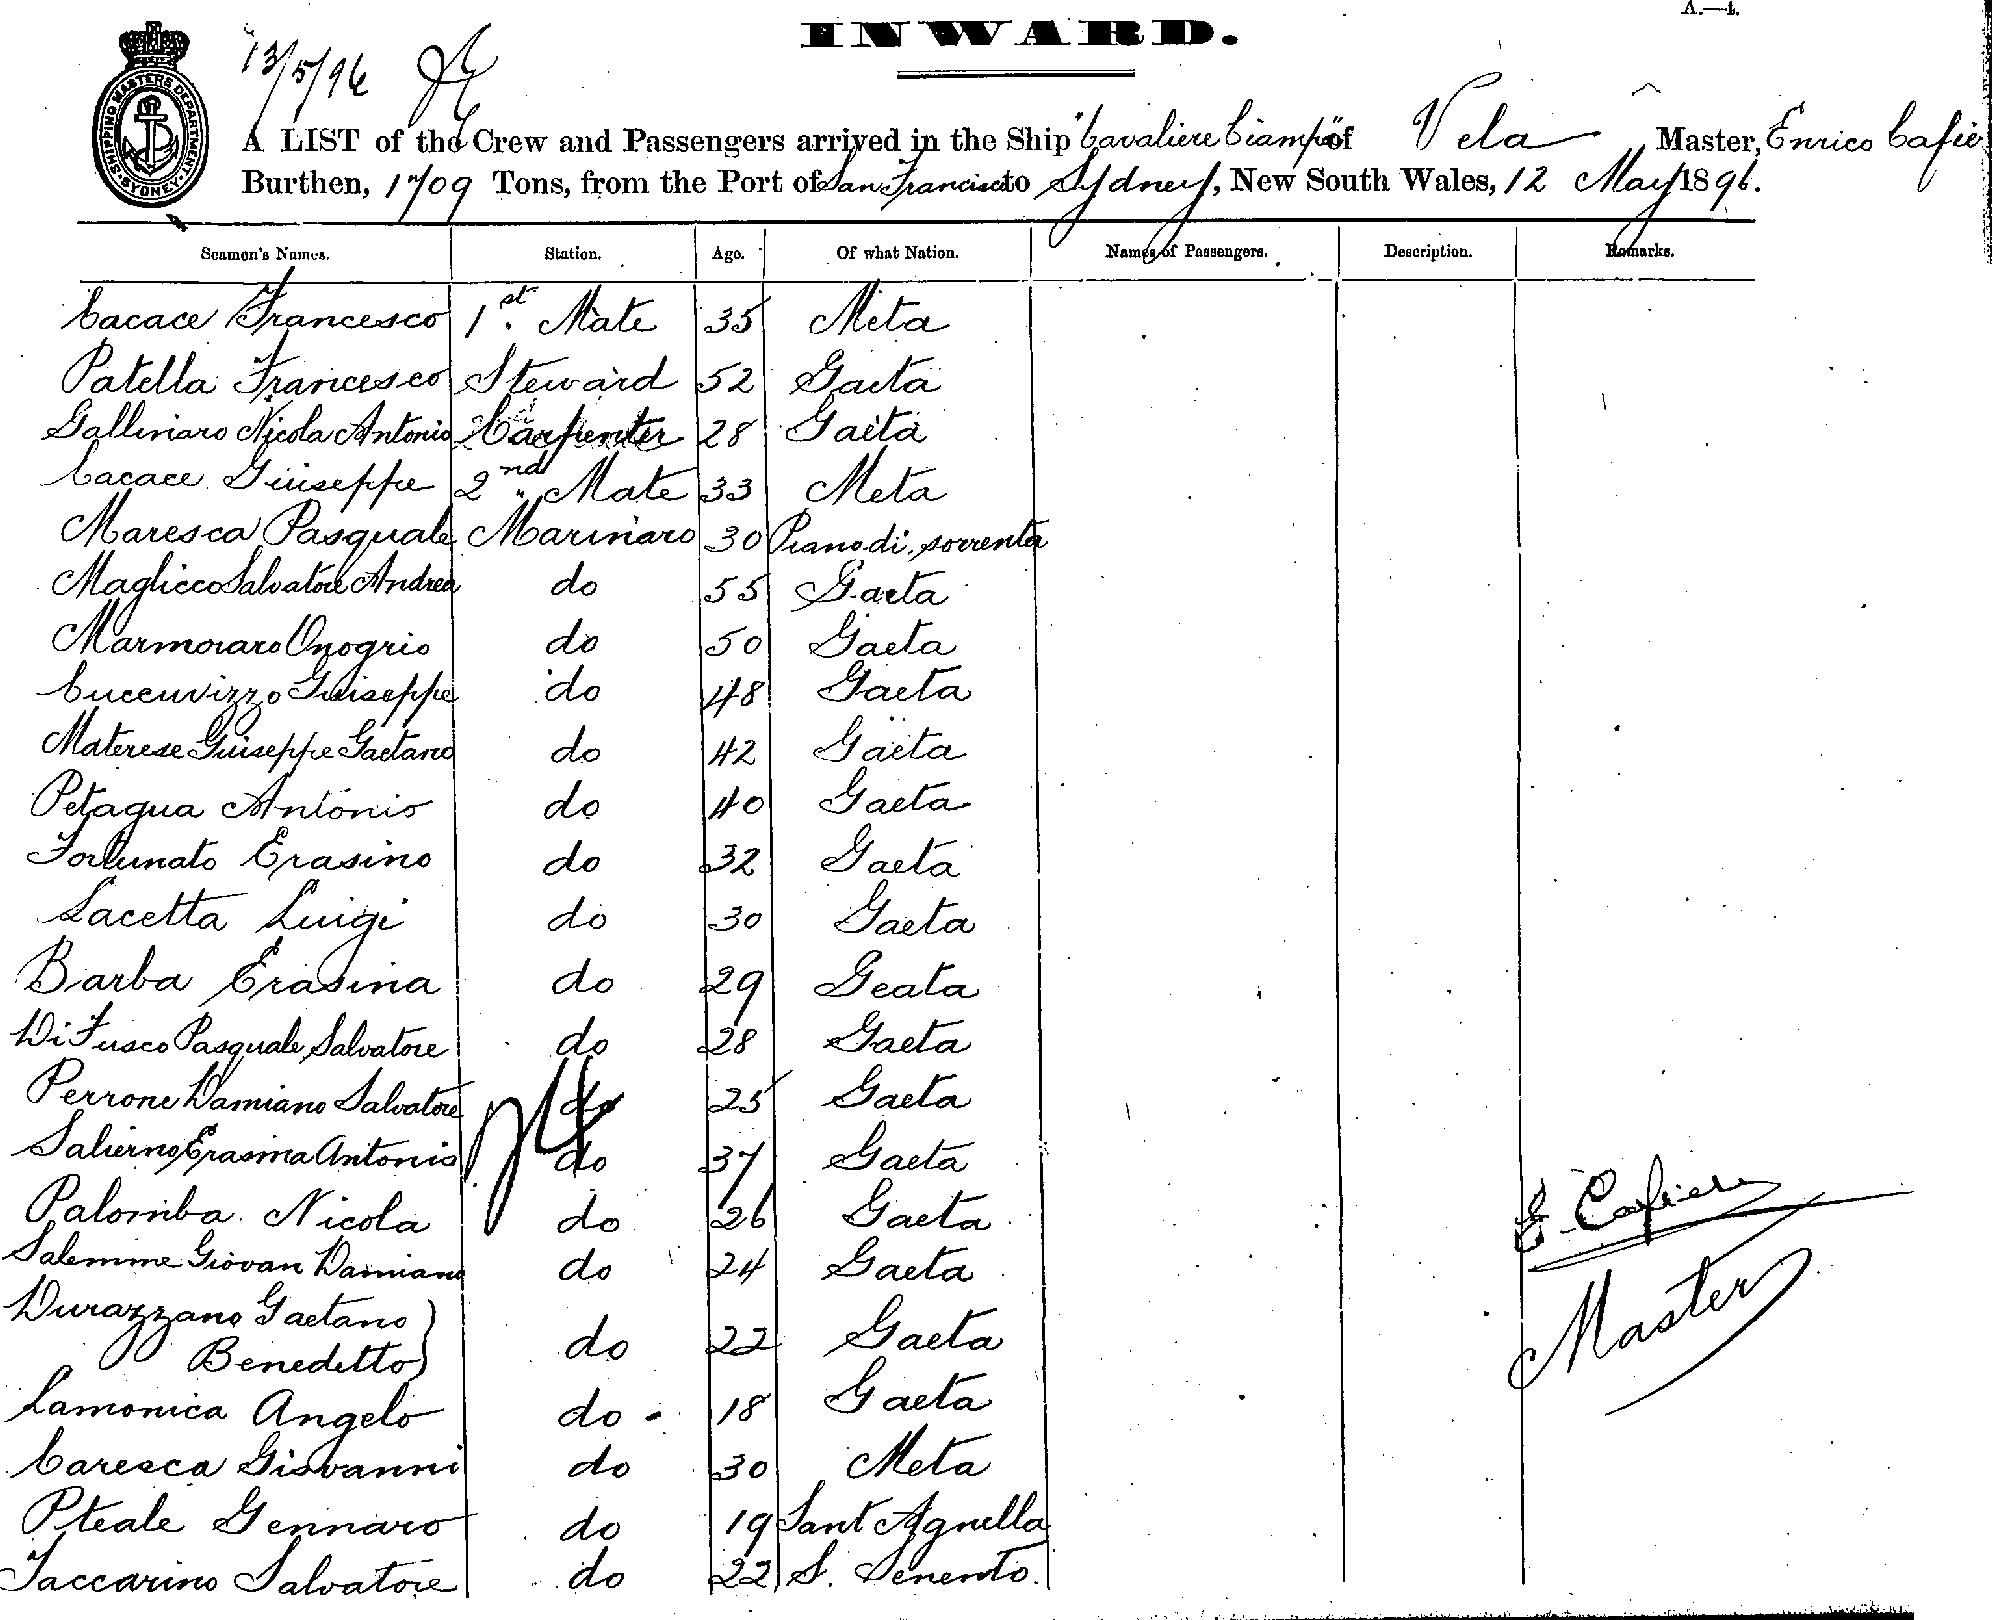 A.—4.
INWARD.
13/5/96
SHIPPING MASTERS DEPARTMENT
SYDNEY
A LIST of the Crew and Passengers arrived in the Ship "Cavaliere Ciampa" of Vela Master, Enrico Cafie
Burthen, 1709 Tons, from the Port of San Francisco to Sydney, New South Wales, 12 May 1896.
Seamen's Names. Station. Age. Of what Nation. Names of Passengers. Description. Remarks.
Cacace Francesco 1st. Mate 35 Meta
Patella Francesco Steward 52 Gaeta
Gallinaro Nicola Antonio Carpenter 28 Gaeta
Cacace Giuseppe 2nd Mate 33 Meta
Maresca Pasquale Marinaro 30 Piano di sorrenta
Magliocco Salvatore Andrea do 55 Gaeta
Marmoraro Onogrio do 50 Gaeta
Cuccuvizzo Guiseppe do 48 Gaeta
Materese Guiseppe Gaetano do 42 Gaeta
Petagua Antonio do 40 Gaeta
Fortunato Erasino do 32 Gaeta
Lacetta Luigi do 30 Gaeta
Barba Erasina do 29 Geata
Di Fusco Pasquale Salvatore do 28 Gaeta
Perrone Damiano Salvatore do 25 Gaeta
Salierno Erasina Antonio do 37 Gaeta
Palomba Nicola do 26 Gaeta
Salemme Giovan Damiano do 24 Gaeta
Durazzano Gaetano
Benedetto do 22 Gaeta
Lamonica Angelo do 18 Gaeta
Caresca Giovanni do 30 Meta
Pteale Gennaro do 19 Sant Agnella
Iaccarino Salvatore do 22 S.
E. Cafiero
Master